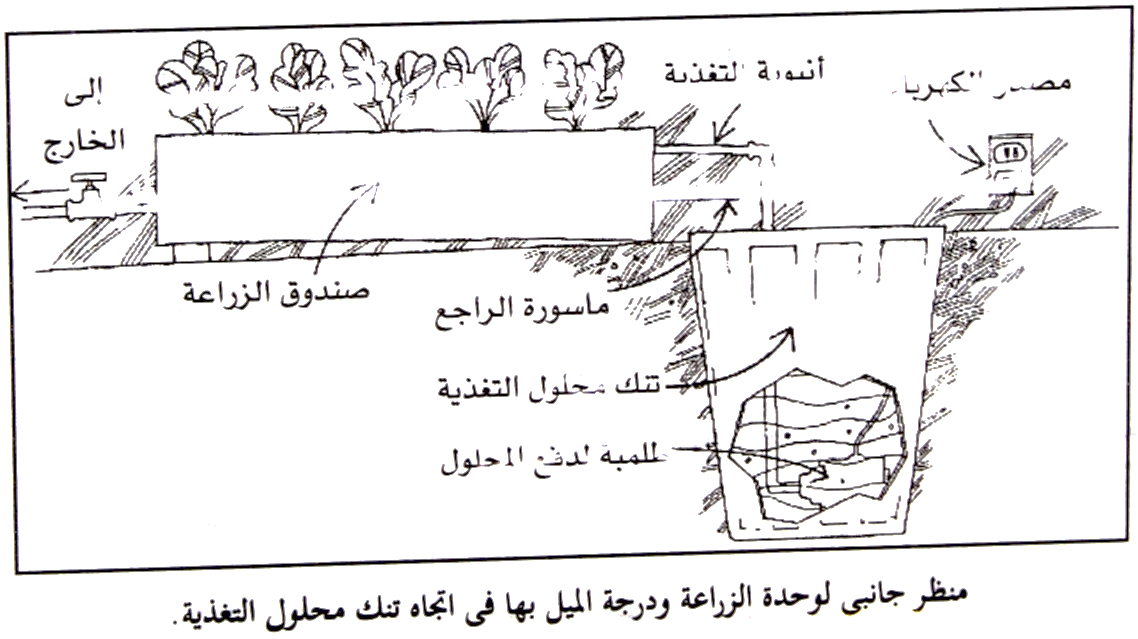 إلى
الخارج
أنبوبة التغذية
مصدر الكهرباء
صندوق الزراعة
ماسورة الراجع
تنك محلول التغذية
طلمبة لدفع المحلول
منظر جانبى لوحدة الزراعة ودرجة الميل بها فى اتجاه تنك محلول التغذية.